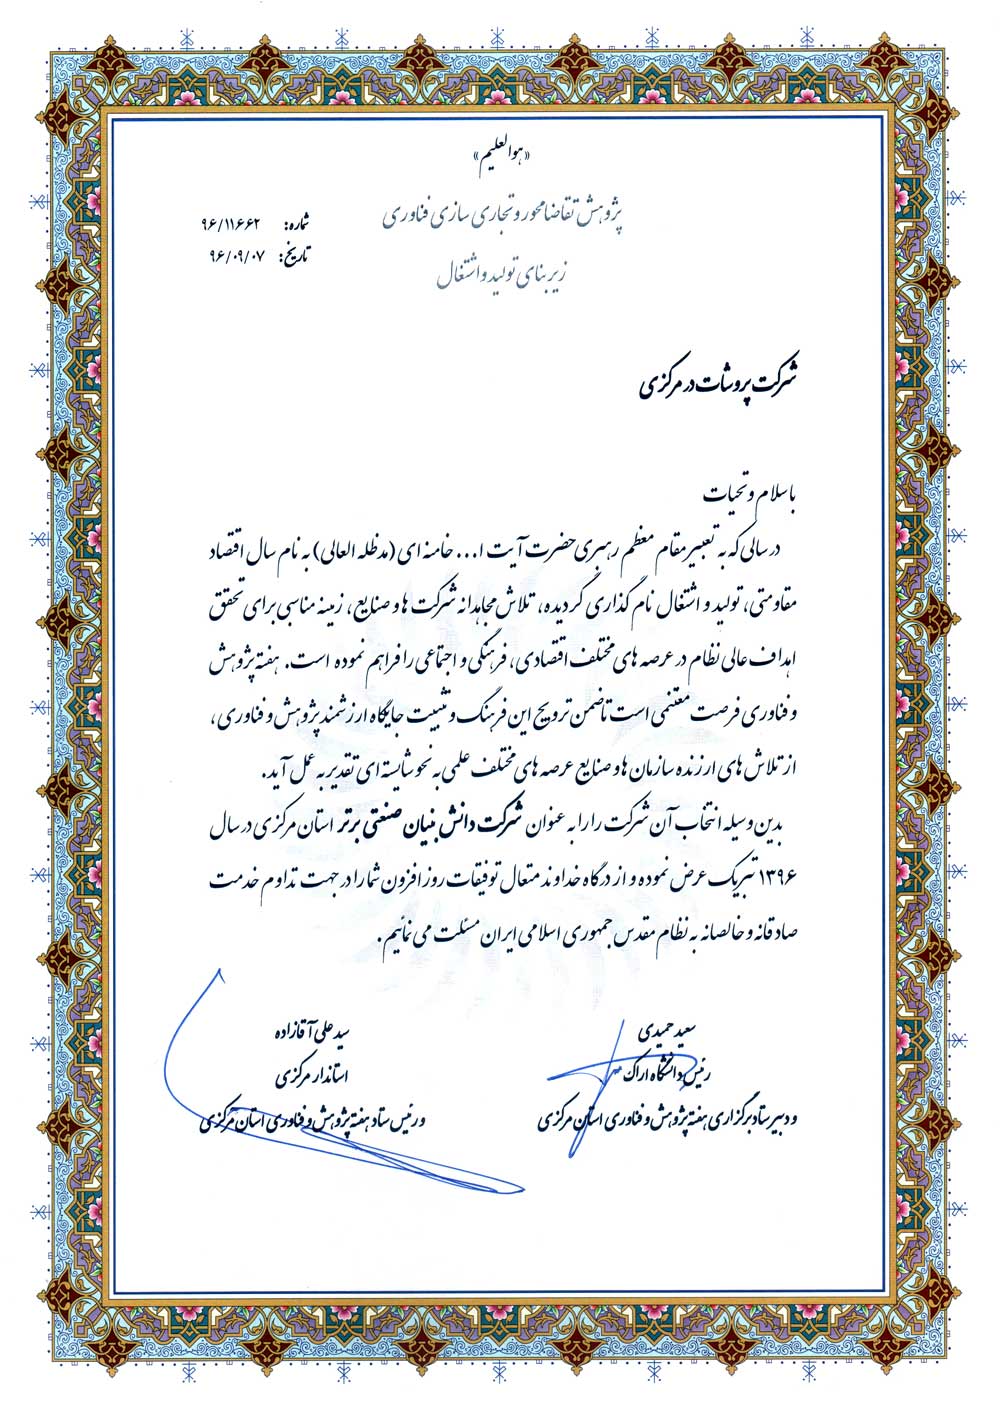 «هوالعلیم»
پژوهش تقاضامحور و تجاری سازی فناوری
شماره: ۹۶/۱۱۶۶۲
تاریخ: ۹۶/۰۹/۰۷
زیربنای تولید و اشتغال
شرکت پروشات در مرکزی
با سلام و تحیات
در سالی که به تعبیر مقام معظم رهبری حضرت آیت ا... خامنه ای (مدظله العالی) به نام سال اقتصاد
مقاومتی، تولید و اشتغال نام گذاری گردیده، تلاش مجاهدانه شرکت ها و صنایع، زمینه مناسبی برای تحقق
اهداف عالی نظام در عرصه های مختلف اقتصادی، فرهنگی و اجتماعی را فراهم نموده است. هفته پژوهش
و فناوری فرصت مغتنمی است تا ضمن ترویج این فرهنگ و تثبیت جایگاه ارزشمند پژوهش و فناوری،
از تلاش های ارزنده سازمان ها و صنایع عرصه های مختلف علمی به نحو شایسته ای تقدیر به عمل آید.
بدین وسیله انتخاب آن شرکت را را به عنوان شرکت دانش بنیان صنعتی برتر استان مرکزی در سال
۱۳۹۶ تبریک عرض نموده و از درگاه خداوند متعال توفیقات روزافزون شما را در جهت تداوم خدمت
صادقانه و خالصانه به نظام مقدس جمهوری اسلامی ایران مسئلت می نمائیم.
سعید حمیدی
رئیس دانشگاه اراک
و دبیر ستاد برگزاری هفته پژوهش و فناوری استان مرکزی
سید علی آقازاده
استاندار مرکزی
و رئیس ستاد هفته پژوهش و فناوری استان مرکزی